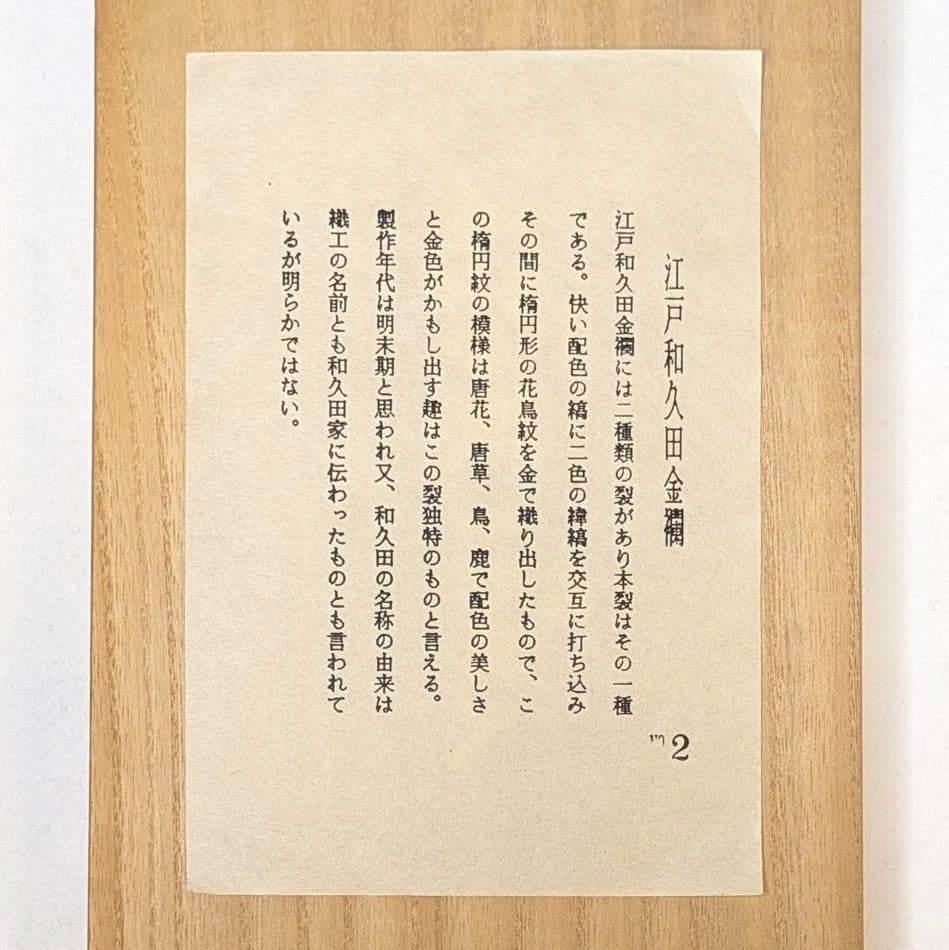 江戸和久田金襴
江戸和久田金襴には二種類の裂があり本裂はその一種
である。快い配色の縞に二色の緯縞を交互に打ち込み
その間に楕円形の花鳥紋を金で織り出したもので、こ
の楕円紋の模様は唐花、唐草、鳥、鹿で配色の美しさ
と金色がかもし出す趣はこの裂独特のものと言える。
製作年代は明末期と思われ又、和久田の名称の由来は
織工の名前とも和久田家に伝わったものとも言われて
いるが明らかではない。
2